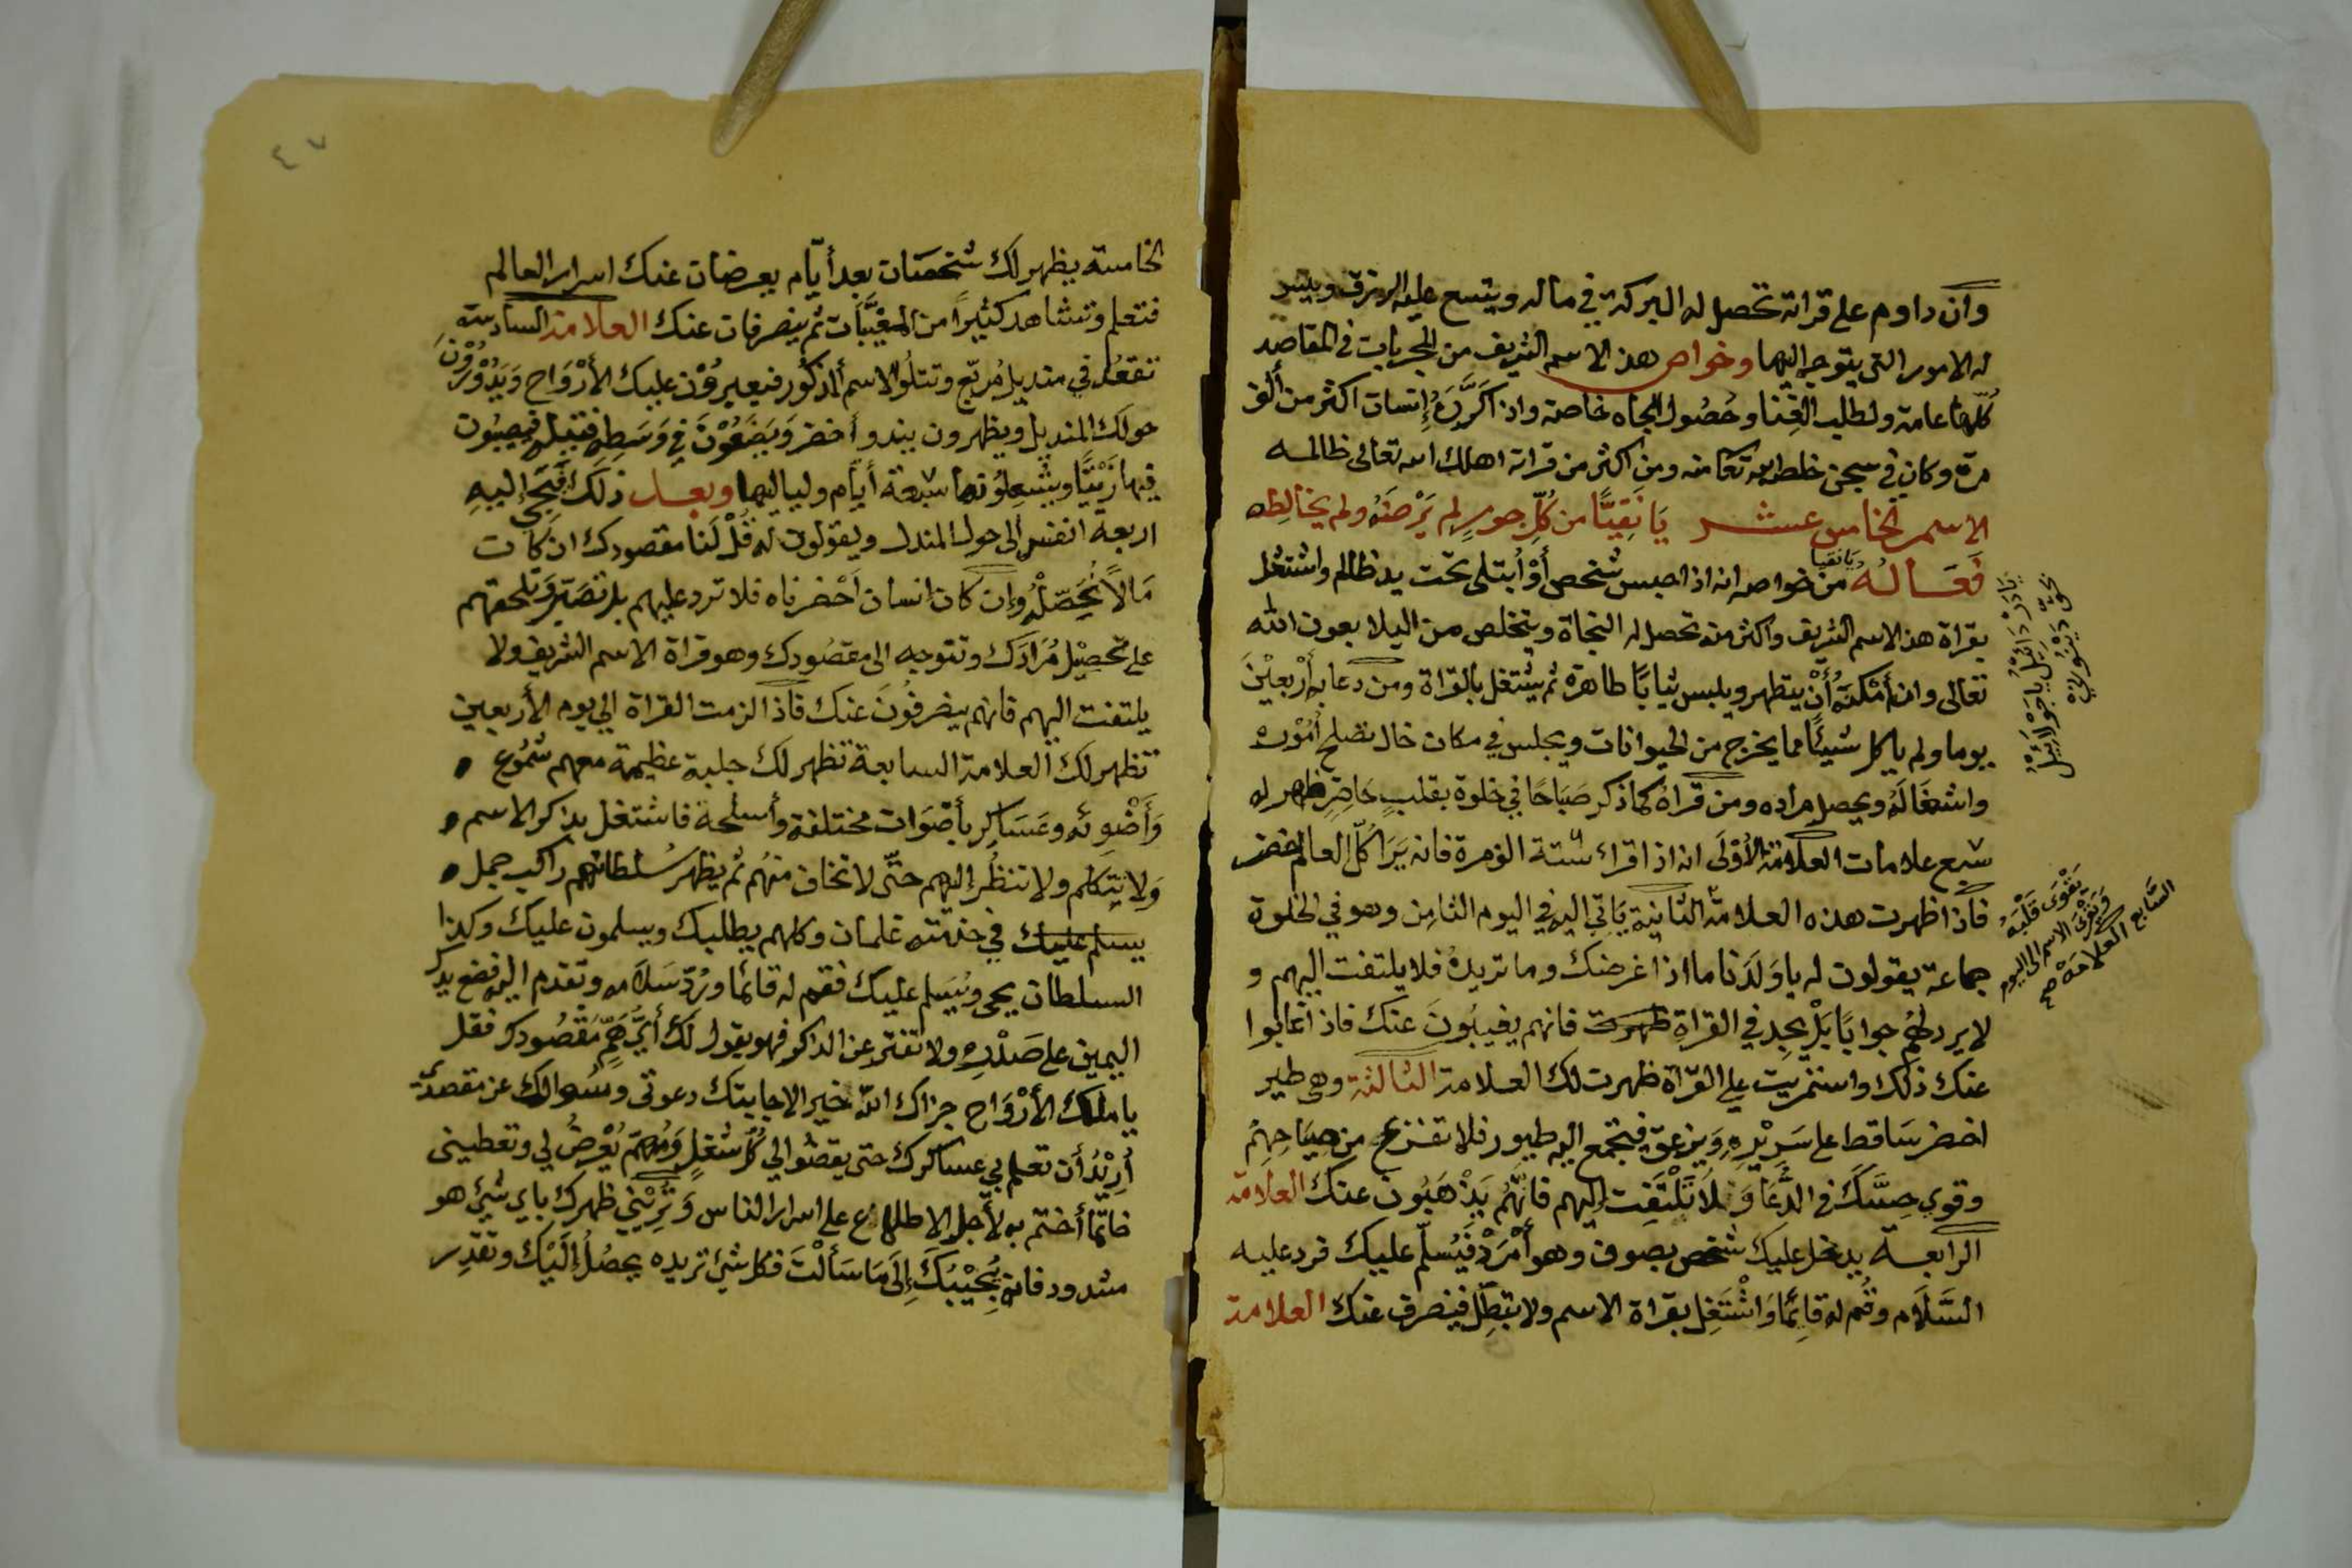 وان داوم على قراته تحصل له البركة في ماله ويتسع عليه الرزق ويتيسر
له الامور التي يتوجه اليها وخواص هذ الاسم الشريف من المجربات في المقاصد
كُلّها عامة ولطلب الغِنا وحُصُول الجاه خاصة واذا كَرَّرَهُ إنسان اكثر من ألف
مرة وكان في سجن خلصه الله تعا منه ومن اكثر من قراته اهلك الله تعالى ظالمه
الاسم الخامس عشر يَا نَقِيًّا من كُلِّ جورٍ لم يَرْضَهُ ولم يخالطه
فَعَالُهُ من خواصه انه اذا حبس شخص أوْ أُبتلى تحت يد ظالم واشتغل
يانقيا
بقراة هذ الاسم الشريف واكثر منه تحصل له النجاة ويتخلص من البلا بعون الله
تعالى وان أمْكَنَهُ أنْ يتطهر ويلبس ثيابًا طاهرة ثم يشتغل بالقراة ومن دعا به أرْبعيْنَ
يوما ولم ياكل شيئًا مما يخرج من الحيوانات ويجلس في مكان خال تصلح أُمُوره
واشغَالَهُ ويحصل مراده ومن قراهُ كما ذكر صَبَاحًا في خلوة بقلبٍ حَاضِرٍ ظهر له
سبع علامات العلامة الأُوْلَى انه اذا قراء ستة الوف مرة فانه يَرَا كُلّ العالم اخضر
فاذا ظهرت هذه العلامة الثانية يَاتي اليه في اليوم الثامِن وهو في الخلوة
جماعة يقولون له ياوَلَدَنا ما اذا غرضك وما تريدهُ فلا يلتفت اليهم و
لا يرد لهُم جوابًا بَلْ يجِد في القراةِ ظهرت فانهم يغيبُونَ عنك فاذا غابوا
عنك ذلك واستمريت على القراة ظهرت لك العلامة الثالثة وهى طير
اخضر سَاقط على سَرِيْرِهِ وَيزعق فيجتمع اليه طيور فلا تفزع من صِيَاحِهِمْ
وقوي حِسَّكَ في الدُّعَا وَلَا تَلْتَفِت إليهم فانَّهُمْ يَذْهَبُون عنك العلامة
الرابعة يدخل عليك شخص بصوف وهو أمْرَدْ فَيُسلّم عليك فرد عليه
السَّلَام وقُم له قائِمًا وَاشْتَغِل بقراة الاسم ولا تبطّل فينصرف عنك العلامة
يقوى قَلْبَهُ
ويَقْرى الاسم الى اليوم
السَّابع العلامَة صح
الخامسة يظهر لك شخصَان بعد أيّام يعرضان عنك اسرار العالم
فتعلم وتشاهد كثيرًا من المغيَّبَات ثم ينصرفان عنك العلامة السادسة
تقعُد في منديل مُربّع وتتلُو الاسم المذكُور فيعبروُن عليك الأرْوَاح وَيَدُوْرُوْنَ
حولك المنديل ويظهرون بندو أخضر وَيَضَعُوْنَ فِي وَسَطِهِ فتيله فيصبُون
فيها زَيْتًا ويُشعِلُونها سَبعة أيَّام ولياليها وبعد ذلكَ فَيَجى إليهِ
اربعة انفس إلى حول المندل ويقولون له قُلْ لَنا مقصودك ان كَان
مَالًا نُحَصّلْهُ وإن كان إنسان اَحْضرناه فلا ترد عليهم بل تصَبّر وَتلحقهم
على تحصِيْل مُرَادَك وتتوجه الى مقصُودك وهو قراة الاسم الشريف ولا
يلتفت اليهم فانهم ينصرفُونَ عنك فاذا لزمت القراة الي يوم الأربعين
تظهر لك العلامة السابعة تظهر لك جلبة عظيمة معهم شُمُوع
وَأَضْوِئه وعَسَاكِر بأصْوَات مختلفة وأسلحة فاشتغل بذكر الاسم
وَلا يتكلم ولا تنظُر إليهم حتّى لا تخاف منهُم ثم يظهر سُلطانهم راكب جمل
يسلم عليك في خدمته غلمان وكلهم يطلبك ويسلمون عليك وكذا
السلطان يجى ويُسَلم عليك فقم له قائمًا ورُدّ سَلَامه وتقدم اليه فضع يدك
اليمين على صَدْرِك ولا تفتر عن الذاكر فهو يقول لكَ أيّ هَمِّ مَقْصُودك فقل
يا ملك الأرْوَاح جزاك الله خير الاجابتك دعوتى وسُوالك عن مقصدى
أُرِيْدُ أن تعلم لي عساكرك حتى يقضُوا لي كُلّ شُغلٍ وَمُهِمّ يُعْرِضُ لي وتعطينى
خاتمًا أختم به لأجل الاطلاع على اسرار الناس وَتُرِيْني ظهرك باي شَيئ هو
مشدود فانه يُجيْبُكَ إلَى مَا سَألْتَ فكل شئ تريده يحصُلُ إلَيْك وتقدِر